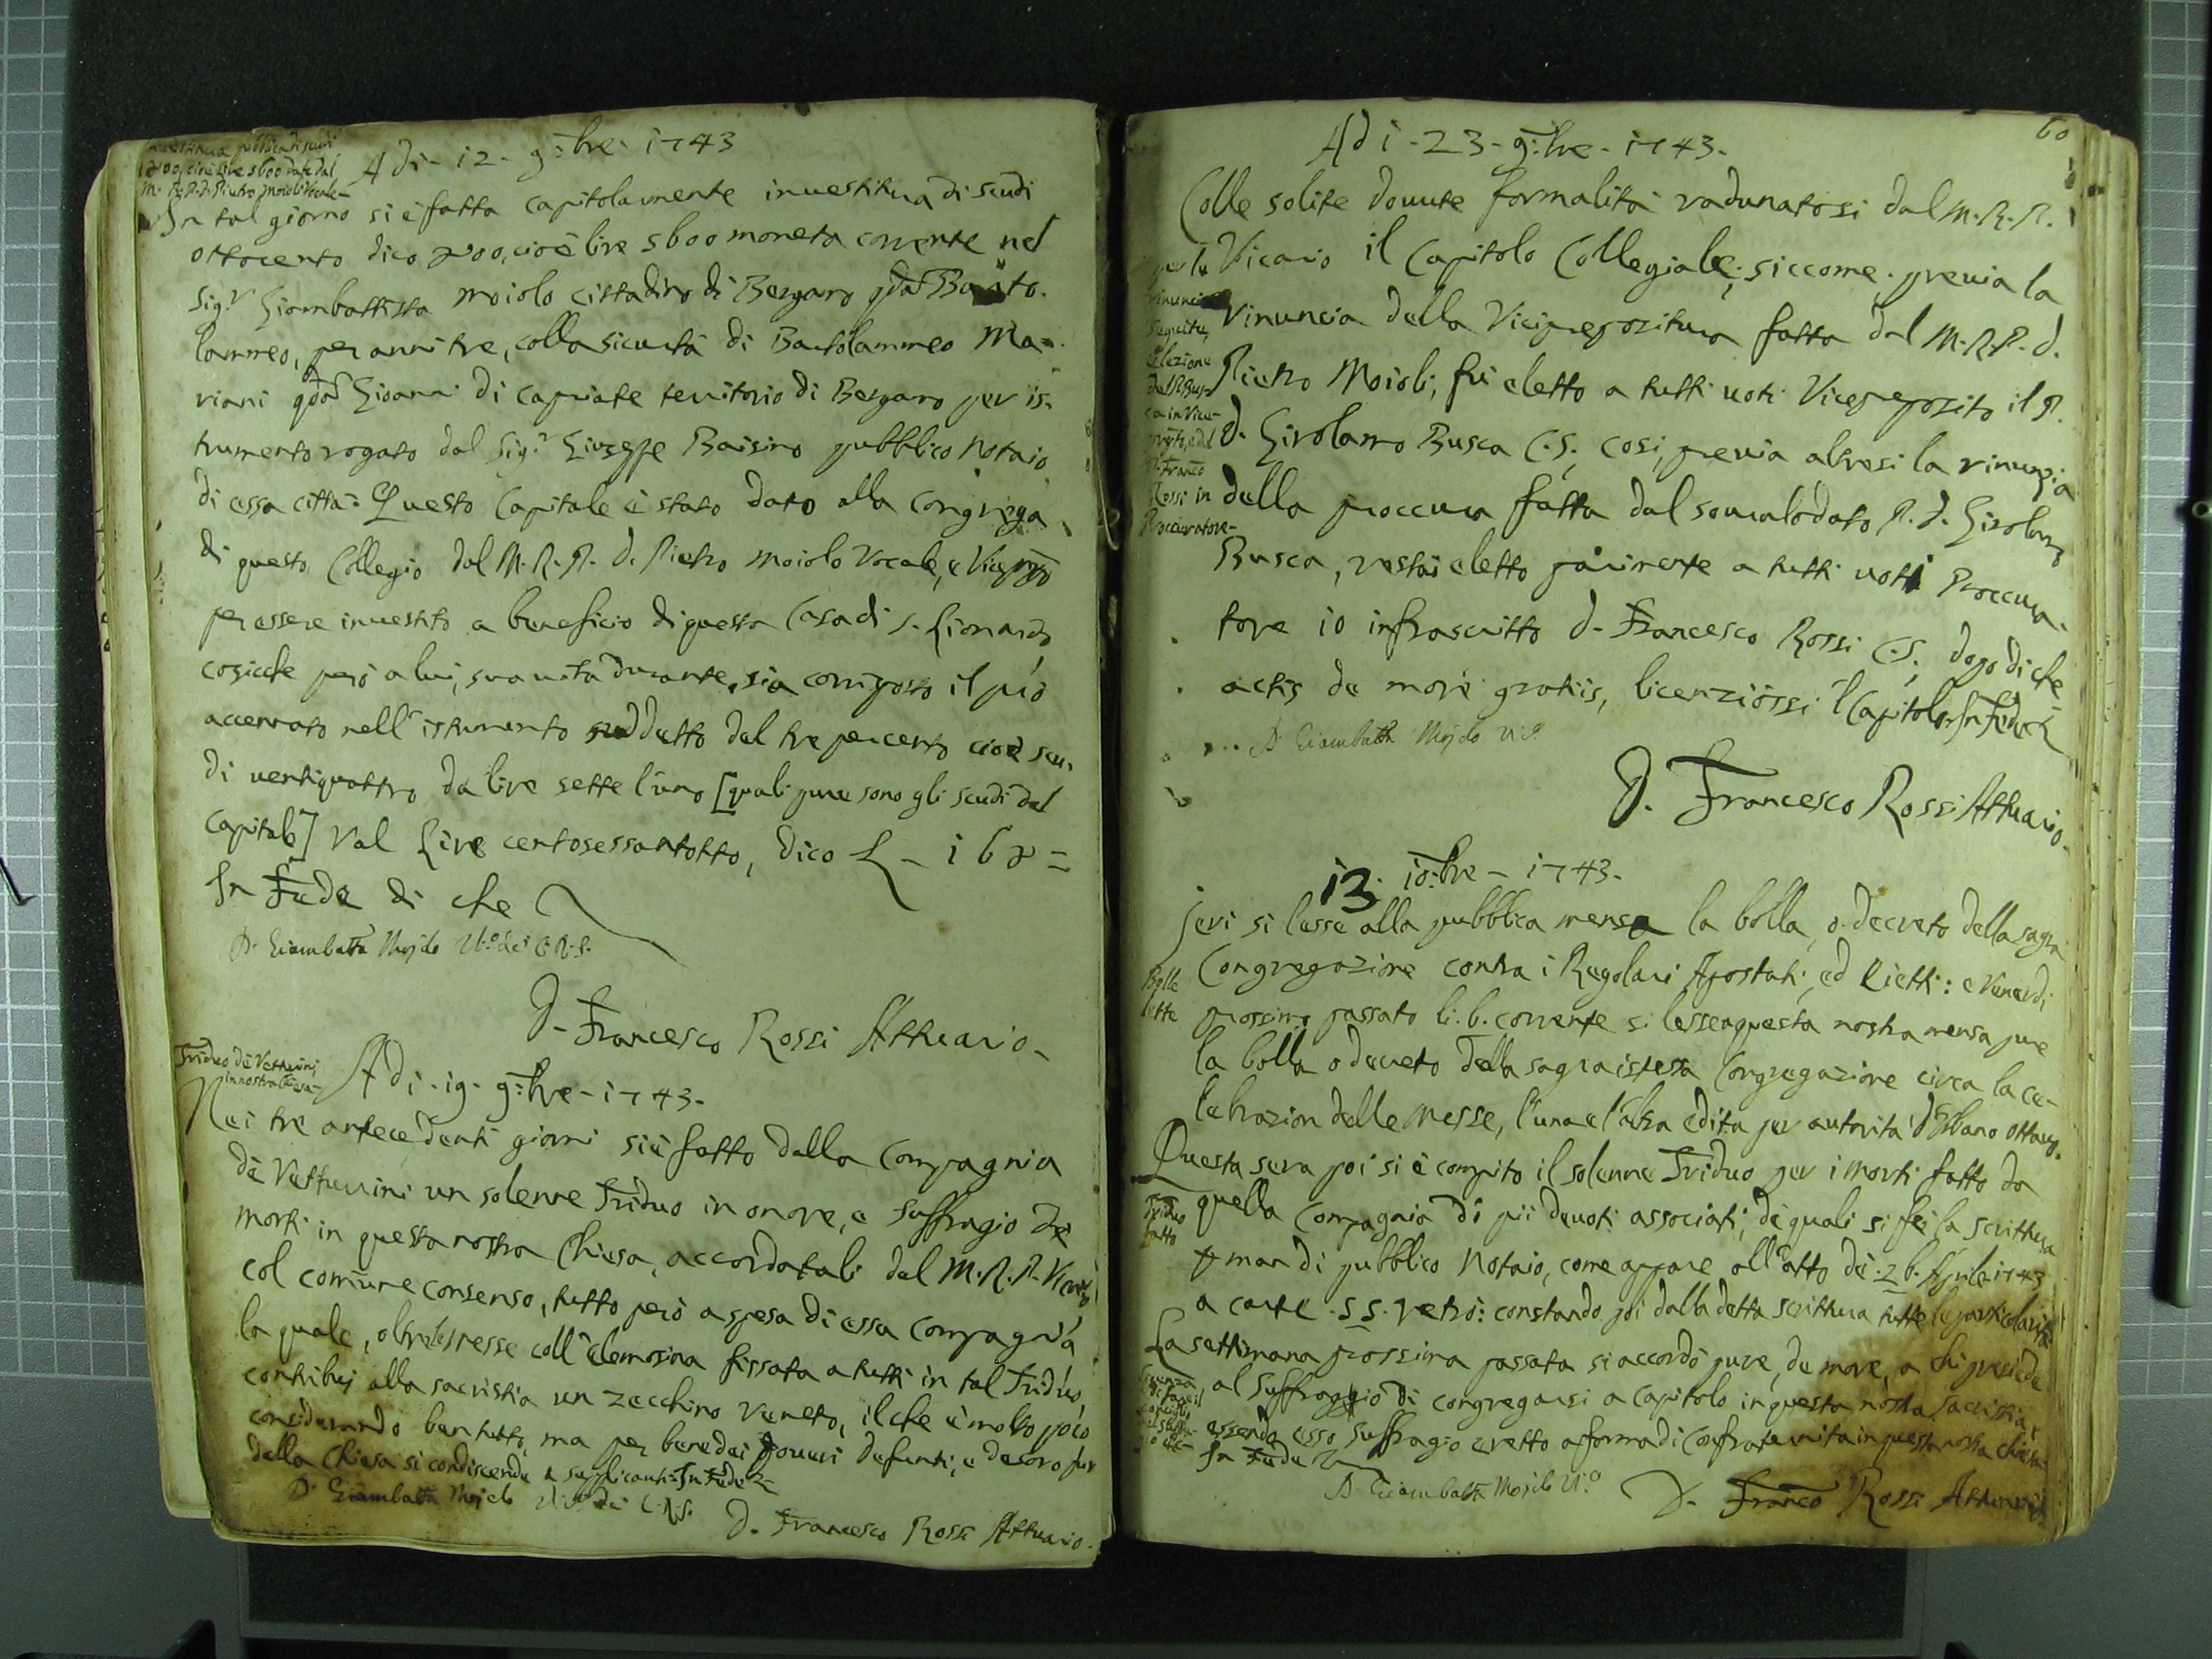 800, cioè lire 5600 date dal
M. R. P. d. Pietro Moioli Vocale-
A di- 12- 9:bre- 1743
In tal giorno si è fatta capitolarmente investitura di scudi
ottocento dico 800, cioè lire 5600 moneta corrente nel
Sig.r Giambattista Moiolo cittadino di Bergamo qda͂ Barto-
lammeo, per anni tre, colla sicurtà di Bartolammeo Ma-
riani qda͂ Gioanni di Capriate territorio di Bergamo per is-
trumento rogato dal Sig.r Giuseppe Baisino pubblico Notaio
di essa città: Questo Capitale è stato dato alla Congrega
di questo Collegio dal M. R. P. d. Pietro Moiolo Vocale, e Vicepp͂to
per essere investito a beneficio di questa Casa di S. Lionardo
cosicche però a lui, sua vita durante, sia corrisposto il prò
accennato nell'istrumento suddetto del tre per cento cioè scu-
di ventiquattro da lire sette l'uno [quali pure sono gli scudi del
Capitale] val Lire centosessantotto, dico L - 168 =
In Fede di che
D. Giambatta Mojolo V.o dei C. R. S.
D. Francesco Rossi Attuario-
Triduo de Vetturini
in nostra Chiesa-
A di- 19- 9:bre- 1743-
Nei tre antecedenti giorni si è fatto dalla Compagnia
de Vetturini un solenne Triduo in onore, e suffragio de
morti in questa nostra Chiesa, accordatali dal M. R. P. Vicario
col comune consenso, tutto però a spesa di essa Compagnia
la quale, oltre le messe coll'elemosina fissata a tutti in tal Triduo,
contribuì alla sacristia un zecchino veneto, il che è molto poco
considerando ben tutto, ma per bene dei poveri defunti, e decoro pur
della Chiesa si condiscende a supplicanti: In Fede
D. Giambatta Mojolo V.o dei C. R. S.
D. Francesco Rossi Attuario-
60
A di - 23 - 9:bre - 1743-
Colle solite dovute formalità radunatosi dal M. R. P.
Vicario il Capitolo Collegiale; siccome previa la
rinuncia della Viceprepositura fatta dal M. R. P. d.
Pietro Moioli, fù eletto a tutti voti Viceprepozito il P.
d. Girolamo Busca C. S; così, previa altresì la rinunzia
della proccura fatta dal sovralodato P. d. Girolamo
Busca, restai eletto parimente a tutti voti Proccura-
tore io infrascritto d. Francesco Rossi C. S; dopo di che
actis de more gratiis, licenziossi il Capitolo. In Fede
rinuncia
seguita,
elezione
del P. Bus-
ca in Vice-
ppto, e del
P. Franco
Rossi in
Proccuratore-
D. Giambatta Mojolo V.o
D. Francesco Rossi Attuario-
13. 10:bre - 1743.
Jeri si lesse alla pubblica mensa la bolla, o decreto della sagra
Congregazione contra i Regolari Apostati, ed Eietti: e Venerdì
prossimo passato li. 6. corrente si lesse a questa nostra mensa pure
la bolla o decreto della sagra istessa Congregazione circa la ce-
lebrazion delle messe, l'una e l'altra edita per autorità d'Urbano ottavo.
Bolle
lette
Questa sera poi si è compito il solenne Triduo per i morti fatto da
quella Compagnia di pii devoti associati, de quali si fei la scrittura
p man di pubblico Notaio, come appare all'atto de 26. Aprile 1743
a carte 55. retro: constando poi dalla detta scrittura tutte le particolarità
Triduo
fatto
La settimana prossima passata si accordò pure, de more, a chi presiede
al Suffraggio di congregarsi a capitolo in questa nostra sacristia,
essendo esso Suffragio eretto a forma di Confraternita in questa nostra chiesa.
In Fede
D. Giambatta Mojolo V.o
D. Franco Rossi Attuario